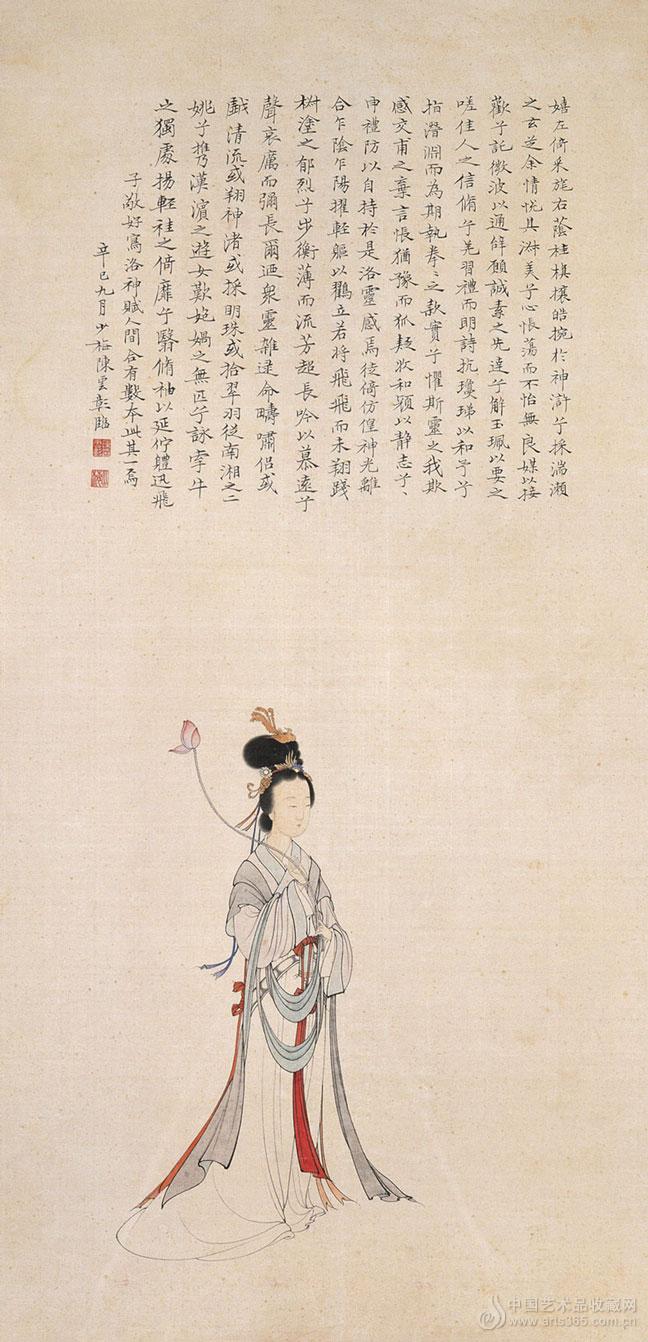 嬉左倚采旄右蔭桂旗攘皓捥於神滸兮採湍瀬
之玄芝余情悅其淋美兮心悵蕩而不怡無良媒以接
歡兮託微波以通辭願誠素之先達兮解玉珮以要之
嗟佳人之信脩兮羌習禮而明詩抗瓊珶以和予兮
指潛淵而為期執拳〻之款實兮懼斯靈之我欺
感交甫之棄言悵猶豫而狐疑收和顏以静志兮〻
申禮防以自持於是洛靈感焉徙倚仿偟神光離
合乍陰乍陽擢輕軀以鶴立若將飛飛而未翔踐
椒塗之郁烈兮步衡薄而流芳超長吟以慕遠兮
聲哀厲而彌長爾迺眾靈雜遝命疇嘯侶或
戲清流或翔神渚或採明珠或拾翠羽從南湘之二
姚兮攜漢濱之遊女歎匏媧之無匹兮詠牽牛
之獨處揚輕袿之倚靡兮翳脩袖以延佇體迅飛
子敬好寫洛神賦人間合有數本此其一焉
辛巳九月少梅陳雲彰臨
中国艺术品收藏网
www.arts365.com.cn